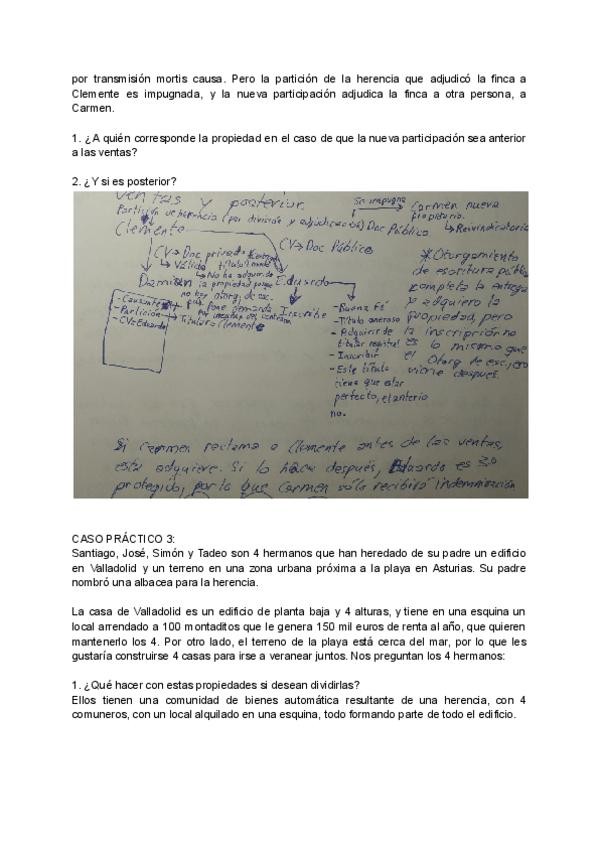 por transmisión mortis causa. Pero la partición de la herencia que adjudicó la finca a
Clemente es impugnada, y la nueva participación adjudica la finca a otra persona, a
Carmen.
1. ¿A quién corresponde la propiedad en el caso de que la nueva participación sea anterior
a las ventas?
2. ¿Y si es posterior?
ventas y posterior.
Partición de herencia (por división y adjudicación) Doc Público.
Se impugna
Carmen nueva
propietaria.
↳ Reivindicatoria
Clemente
CV → Doc privado
↳ Válido
↳ No ha adquirido
la propiedad porque
no hay otorg. de esc.
CV → Doc Público
Damián
Eduardo
- Causante
- Partición
- CV Eduardo
→ Titular Clemente
Inscribe
- Buena Fé
- Título oneroso
- Adquirir de
titular registral
- Inscribir
- Este título
tiene que estar
perfecto, el anterio
no.
* Oturgamiento
de escritura públic
completa la entrega
y adquiero la
propiedad, pero
la inscripción no
es lo mismo que
el Otorg de esc, eso
viene después.
Si Carmen reclama a Clemente antes de las ventas,
esta adquiere. Si lo hace después, Eduardo es 3º
protegido, por lo que Carmen sólo recibirá indemnización
CASO PRÁCTICO 3:
Santiago, José, Simón y Tadeo son 4 hermanos que han heredado de su padre un edificio
en Valladolid y un terreno en una zona urbana próxima a la playa en Asturias. Su padre
nombró una albacea para la herencia.
La casa de Valladolid es un edificio de planta baja y 4 alturas, y tiene en una esquina un
local arrendado a 100 montaditos que le genera 150 mil euros de renta al año, que quieren
mantenerlo los 4. Por otro lado, el terreno de la playa está cerca del mar, por lo que les
gustaría construirse 4 casas para irse a veranear juntos. Nos preguntan los 4 hermanos:
1. ¿Qué hacer con estas propiedades si desean dividirlas?
Ellos tienen una comunidad de bienes automática resultante de una herencia, con 4
comuneros, con un local alquilado en una esquina, todo formando parte de todo el edificio.